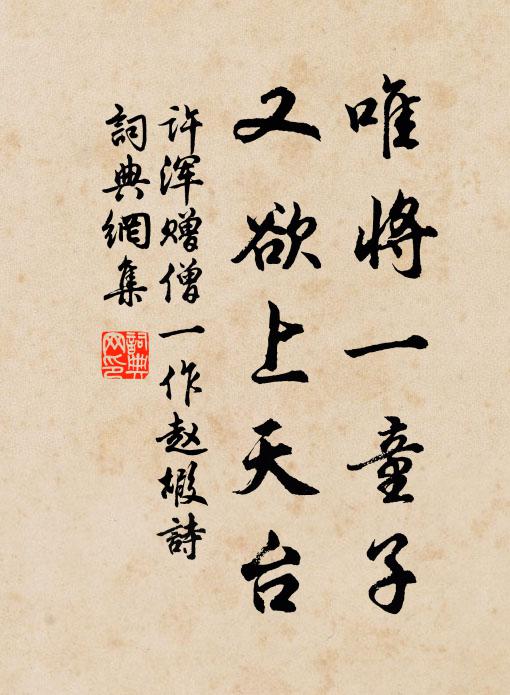 唯將一童子
又欲上天台
许浑赠僧一作赵嘏詩
詞典網集
詞典网印